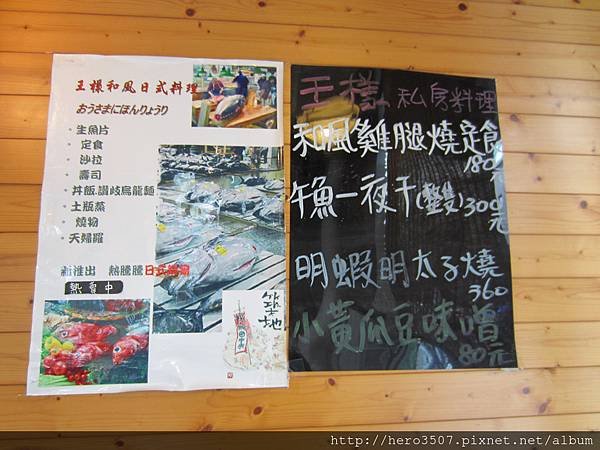 王樣和風日式料理
おうさまにほんりょうり
・生魚片
・定食
・沙拉
・壽司
・丼飯.讚岐烏龍麵
・土瓶蒸
・燒物
・天婦羅
新推出 熱騰騰日式
熱賣中
築地
王樣 私房料理
和風雞腿燒定食
180元
午魚一夜干(整隻)300元
明蝦明太子燒
360
小黃瓜豆味噌
80元
http://hero3507.pixnet.net/album